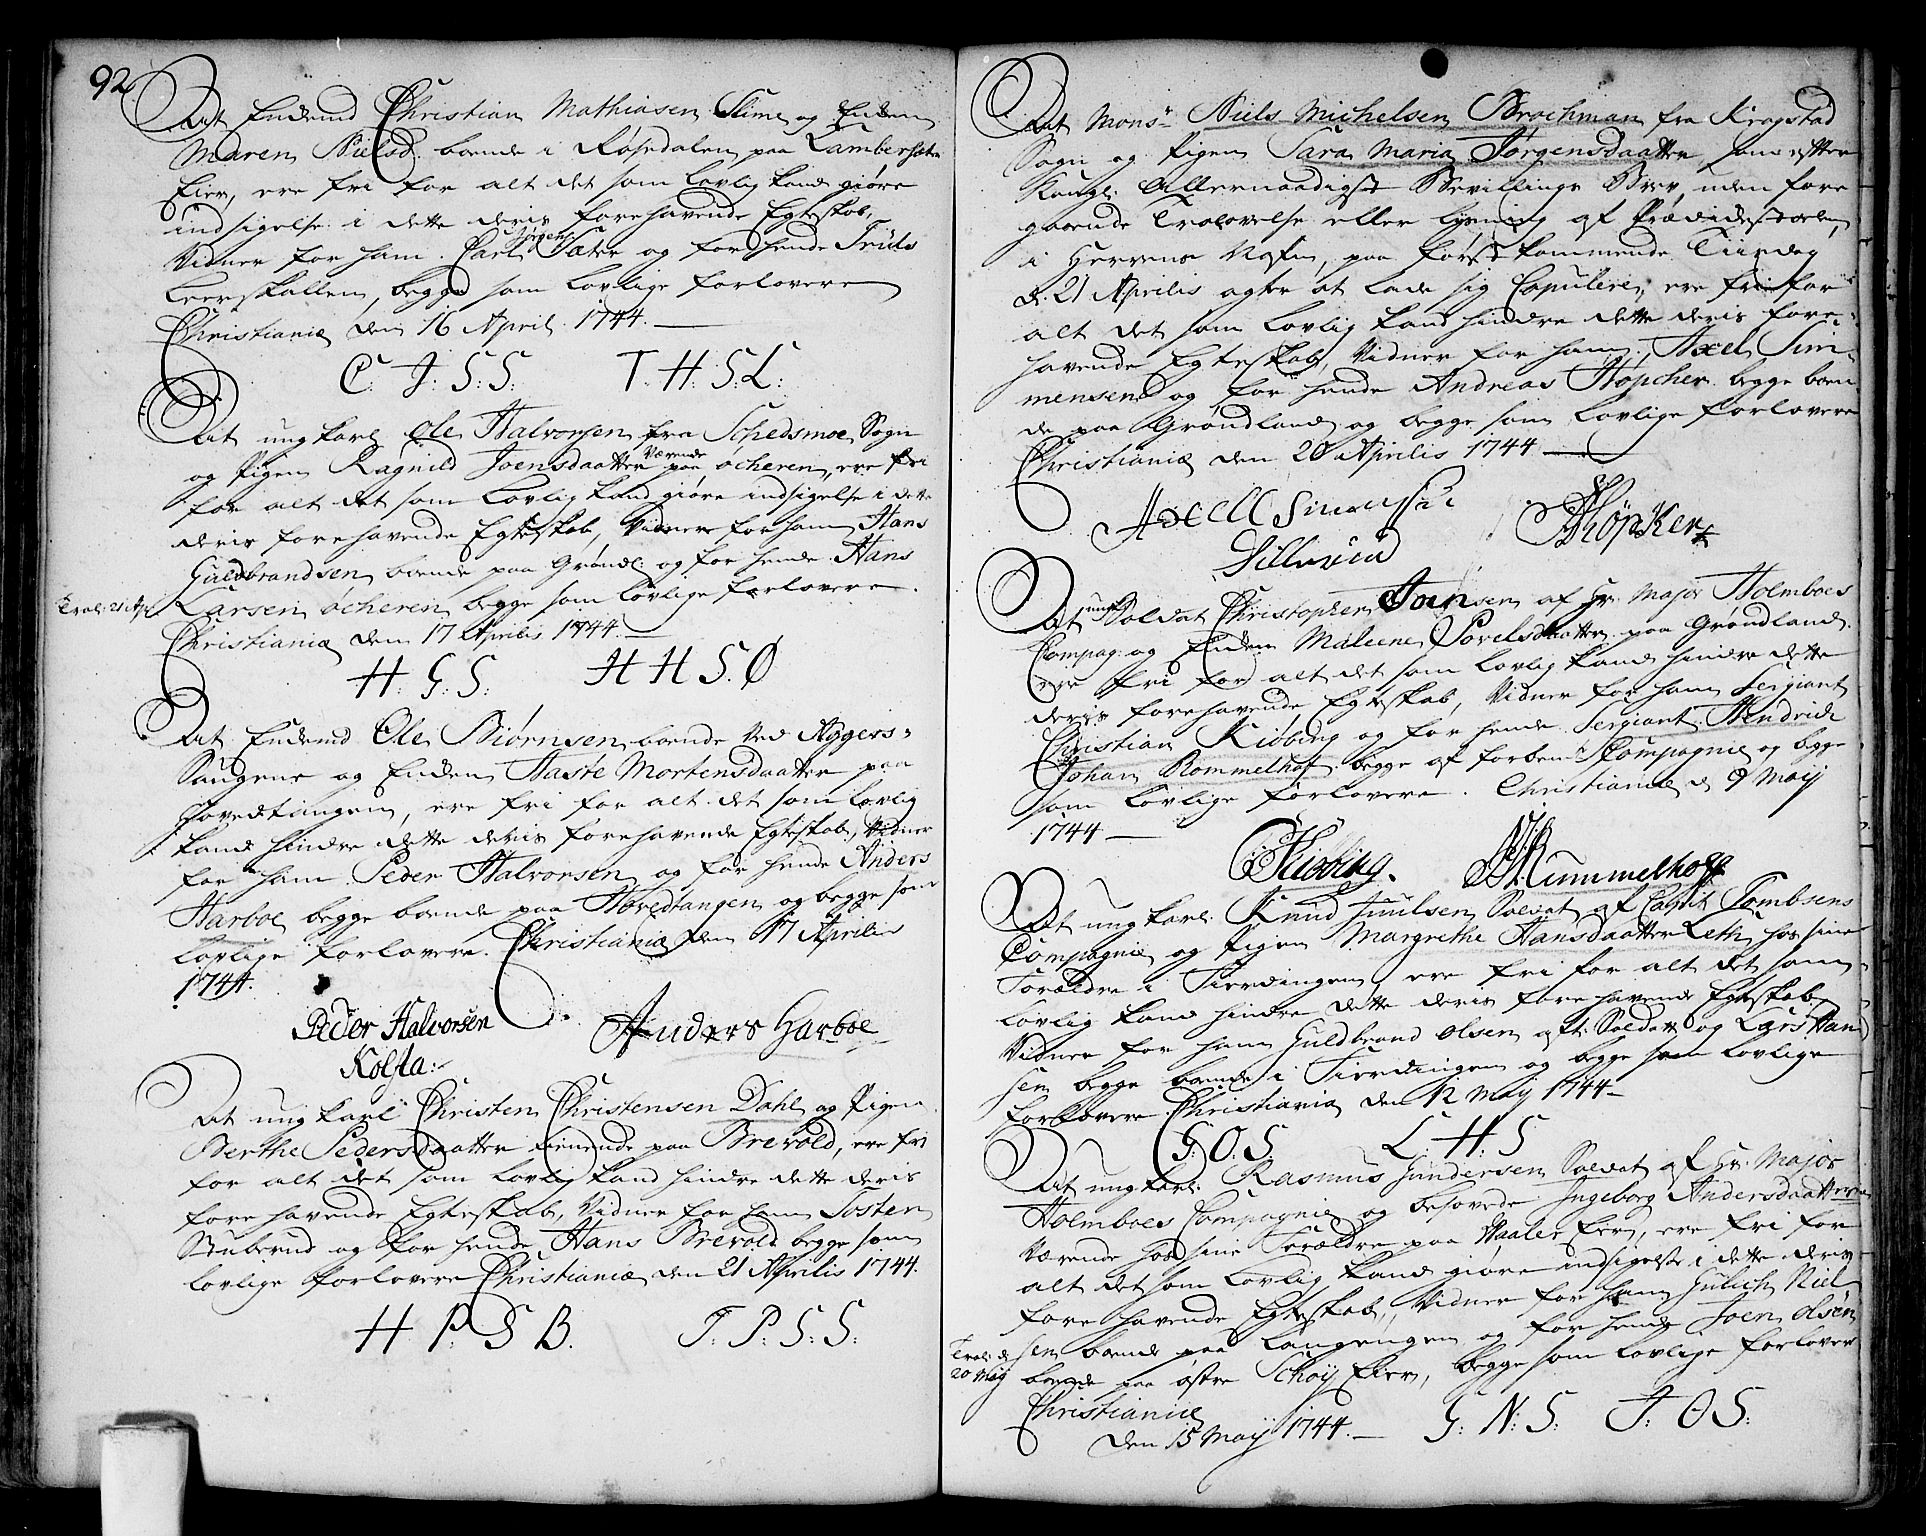 92
At Enkemd Christian Mathiasen Slime og Enken
Maren Nielsd. boende i Røsedalen paa Lambersæter
Eier, ere fri for alt det som lovlig kand giøre
indsigelse i dette deris forehavende Egteskab,
Vidner for ham Carl Jørgens: Sæter og for hende Truls
Leerskallen, begge som lovlige forlovere
Christiania den 16 April 1744.
C. J. S. S. T. H. S. L.
At ung karl Ole Halvorsen fra Schedsmoe Sogn
og Pigen Ragnild Joensdaatter Værende paa Ocheren, ere fri
for alt det som lovlig kand giøre indsigelse i dette
deris forehavende Egteskab, Vidner for ham Hans
Guldbrandsen boende paa Grønl: og for hende Hans
Larsen Ocheren begge som lovlige forlovere.
Trol: 21 Apr
Christiania den 17 Aprilis 1744.
H. G. S. H H S. Ø
At Enkemd Ole Biørnsen boende ved Aggers-
Saugene og Enken Haste Mortensdaatter paa
Hovedtangen, ere fri for alt det som lovlig
kand hindre dette deris forehavende Egteskab, Vidner
for ham Peder Halvorsen og for hende Anders
Harboe begge boende paa Hovedtangen og begge som
lovlige forlovere. Christiania den 17 Aprilis
1744.
Peder Halvorsen Anders Harboe
Kolsta:
At ung karl Christen Christensen Dahl og Pigen
Berthe Pedersdaatter tienende paa Brevold, ere fri
for alt det som lovlig kand hindre dette deris
forehavende Egteskab, Vidner for ham Tosten
Buberud og for hende Hans Brevold begge som
lovlige forlovere Christiania den 21 Aprilis 1744.
H P. S B. T. P. S. S.
At Mons Niels Michelsen Brochman fra Kragstad
Sogn og Pigen Sara Maria Jørgensdaatter, som efter
Kongl: Allernaadigst Bevillings Brev, uden fore
gaaende Trolovelse eller Lysning af Prædikestolen,
i Herrens Nafn, paa først kommende Tiirsdag
d. 21 Aprilis agter at lade sig Copulere, ere fri for
alt det som lovlig kand hindre dette deris fore-
havende Egteskab, Vidner for ham Axel Sim-
mensen og for hende Andreas Höpcher begge boen
de paa Grøndland og begge som lovlige forlovere
Christiania den 20 Aprilis 1744
Axell Simenssen AHöpker
At ung Soldat Christopher Joensen af Hr. Major Holmboes
Compag: og Enken Maleene Povelsdaatter paa Grøndland
ere fri for alt det som lovlig kand hindre dette
deris forehavende Egteskab, Vidner for ham Sergiant
Christian Kiöbing og for hende Sergiant Hendrich
Johan Rommelhof begge af forben: Compagnie og begge
som lovlige forlovere. Christiania d 9 Maij
1744
CKiöbing. Rummelhoff
At ung karl Knud Juulsen Soldat af Capit Tombsens
Compagnie og Pigen Margrethe Hansdaatter Leth hos sine
Forældre i Fierdingen, ere fri for alt det som
lovlig kand hindre dette deris forehavende Egteskab
Vidner for ham Guldbrand Olsen aft: Soldat og Lars Han
sen begge boende i Fierdingen og begge som lovlige
forlovere Christiania den 12 Maij 1744
G. O. S. L. H. S
At ung karl Rasmus Gundersen Soldat af Hr. Major
Holmboes Compagnie og besovede Ingeborg Andersdaatter
Værende hos sine Forældre paa Vaaler Eier, ere fri for
alt det som lovlig kand giøre indsigelse i dette deris
forehavende Egteskab, Vidner for ham Gulich Niel
sen boende paa Langengen og for hende Joen Olsen
Trol: d
20 Maij
boende paa østre Schøy Eier, begge som lovlige forlover
Christianiæ
den 15 Maij 1744. G. N. S. J. O S.